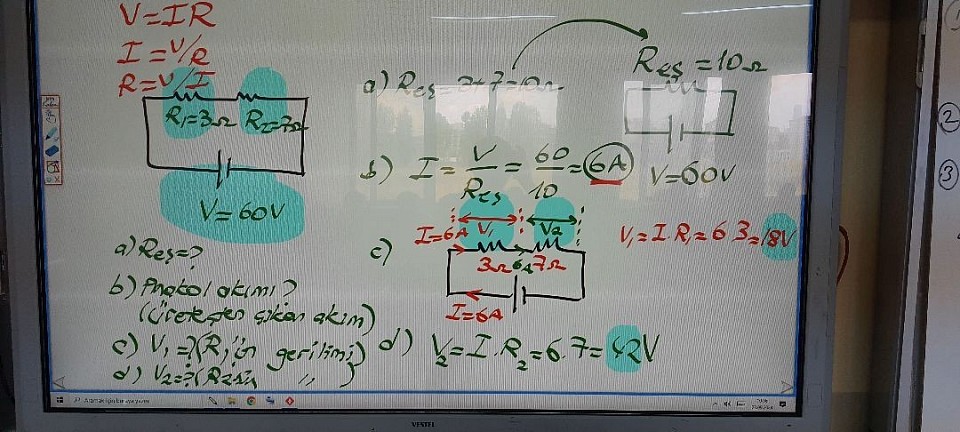 V=IR
I=V/R
R=V/I
R₁=3Ω R₂=7Ω
V=60V
a) Reş=?
b) Anakol akımı?
(Üreteçten çıkan akım)
c) V₁=?(R₁'in gerilimi)
d) V₂=?(R₂'sin " )
a) Reş=3+7=10Ω
Reş=10Ω
V=60V
b) I = V/Reş = 60/10 = 6A
c)
I=6A V₁ V₂
3Ω 6A 7Ω
I=6A
V₁=I.R₁=6.3=18V
d) V₂=I.R₂=6.7=42V
VESTEL
2
3